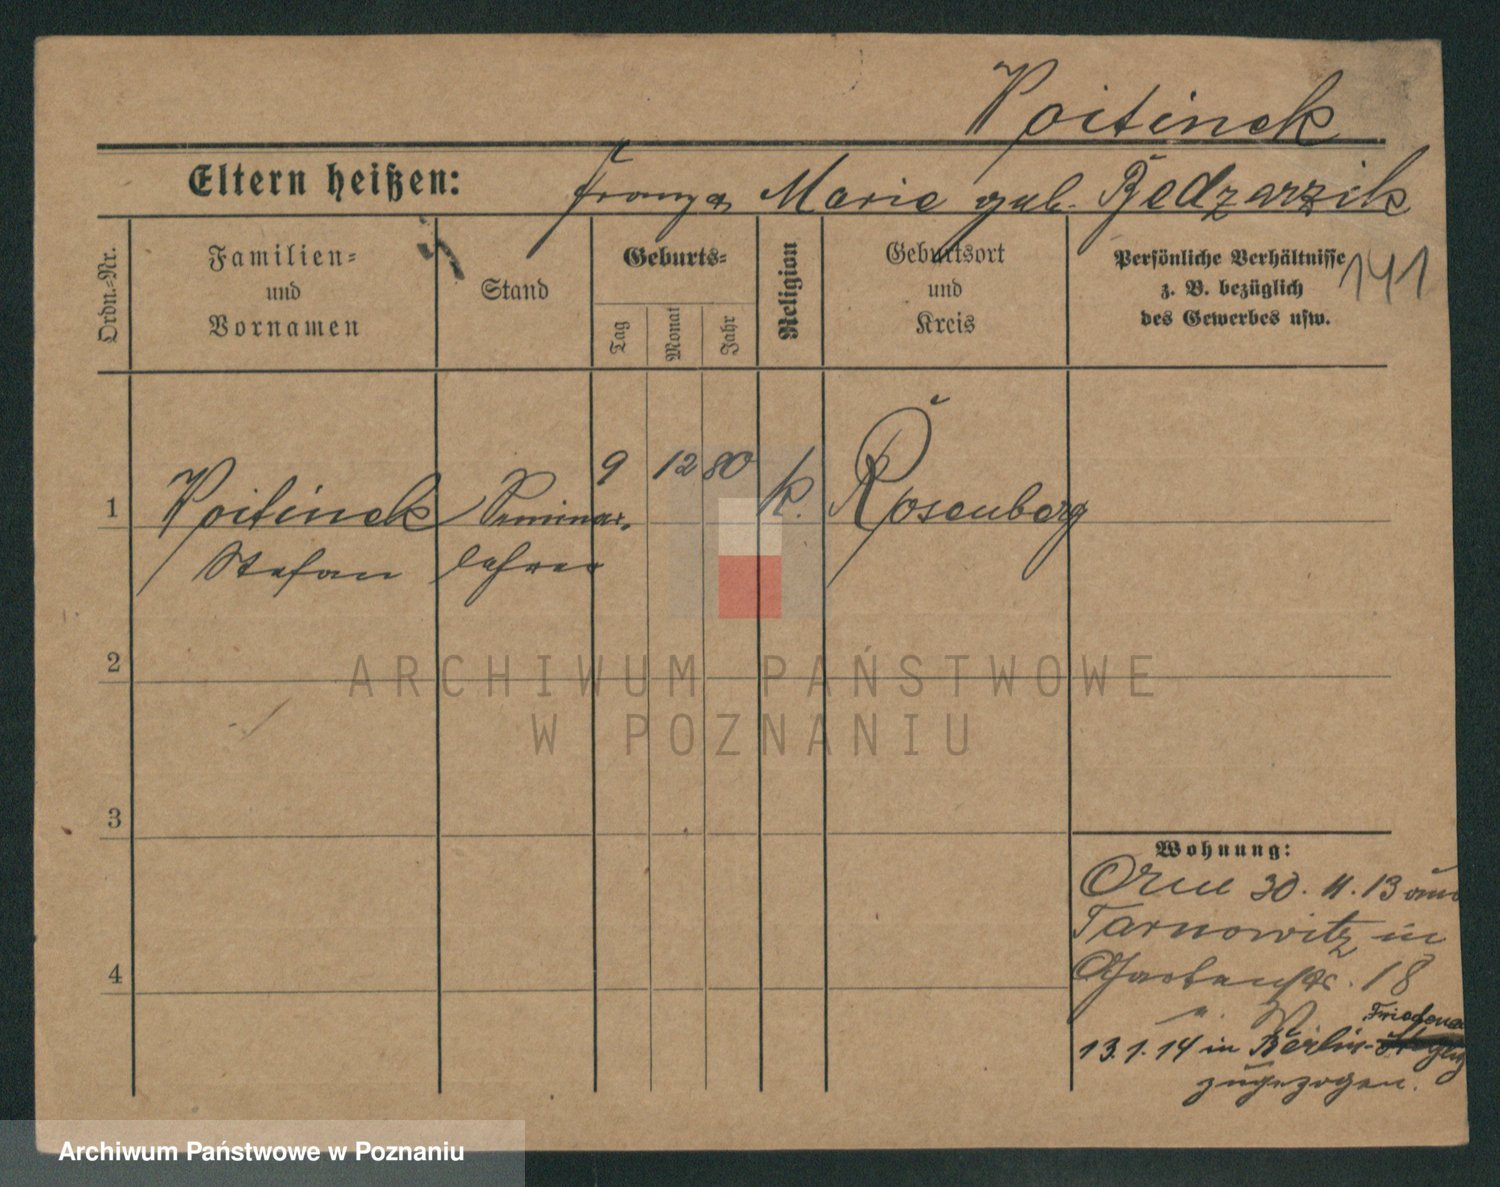 Voitinek
Eltern heißen: Franz u. Marie geb. Bedzarzik
Ordn.-Nr.
Familien-
und
Vornamen
Stand
Geburts-
Tag
Monat
Jahr
Religion
Geburtsort
und
Kreis
Persönliche Verhältnisse
z. B. bezüglich
des Gewerbes usw.
141
1 Voitinek Seminar- 9 12 80 k. Rosenberg
Stefan lehrer
2
ARCHIWUM PAŃSTWOWE
W POZNANIU
3
Wohnung:
30. 11. 13 aus
Tarnowitz in
Gartenstr. 18
Friedenau
13.1.14 in Berlin-
zugezogen.
4
Archiwum Państwowe w Poznaniu